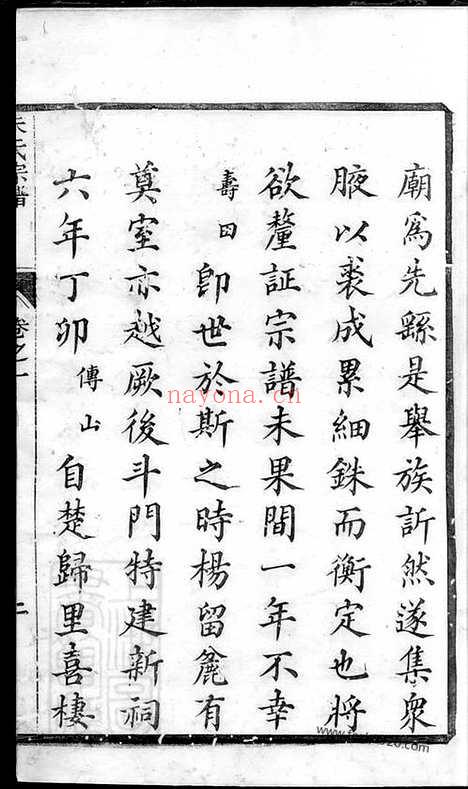 廟為先繇是舉族訢然遂集衆
腋以裘成累細銖而衡定也將
欲釐証宗譜未果間一年不幸
壽田即世於斯之時楊留簏有
奠室亦越厥後斗門特建新祠
六年丁卯傳山自楚歸里喜棲
氏宗譜
卷之一
二
nayona.cn